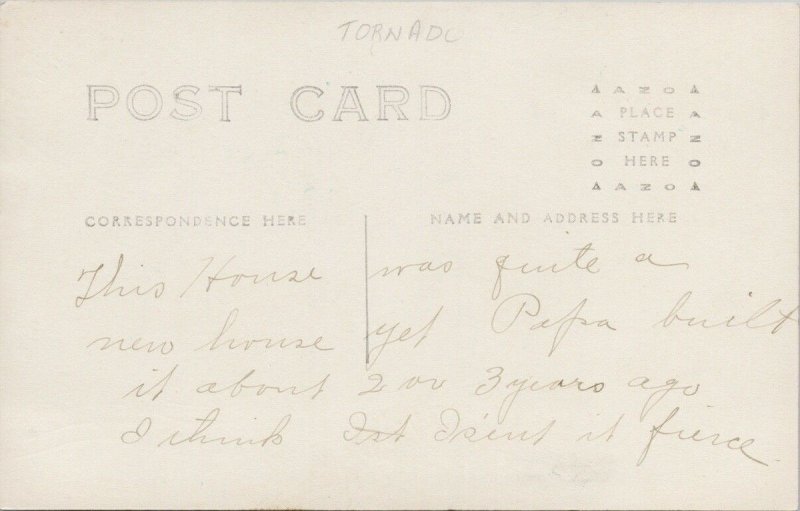 TORNADO
POST CARD
AZO
PLACE
STAMP
HERE
AZO
CORRESPONDENCE HERE
NAME AND ADDRESS HERE
This House was quite a
new house yet Papa built
it about 2 or 3 years ago
I think Ist Isent it fierce